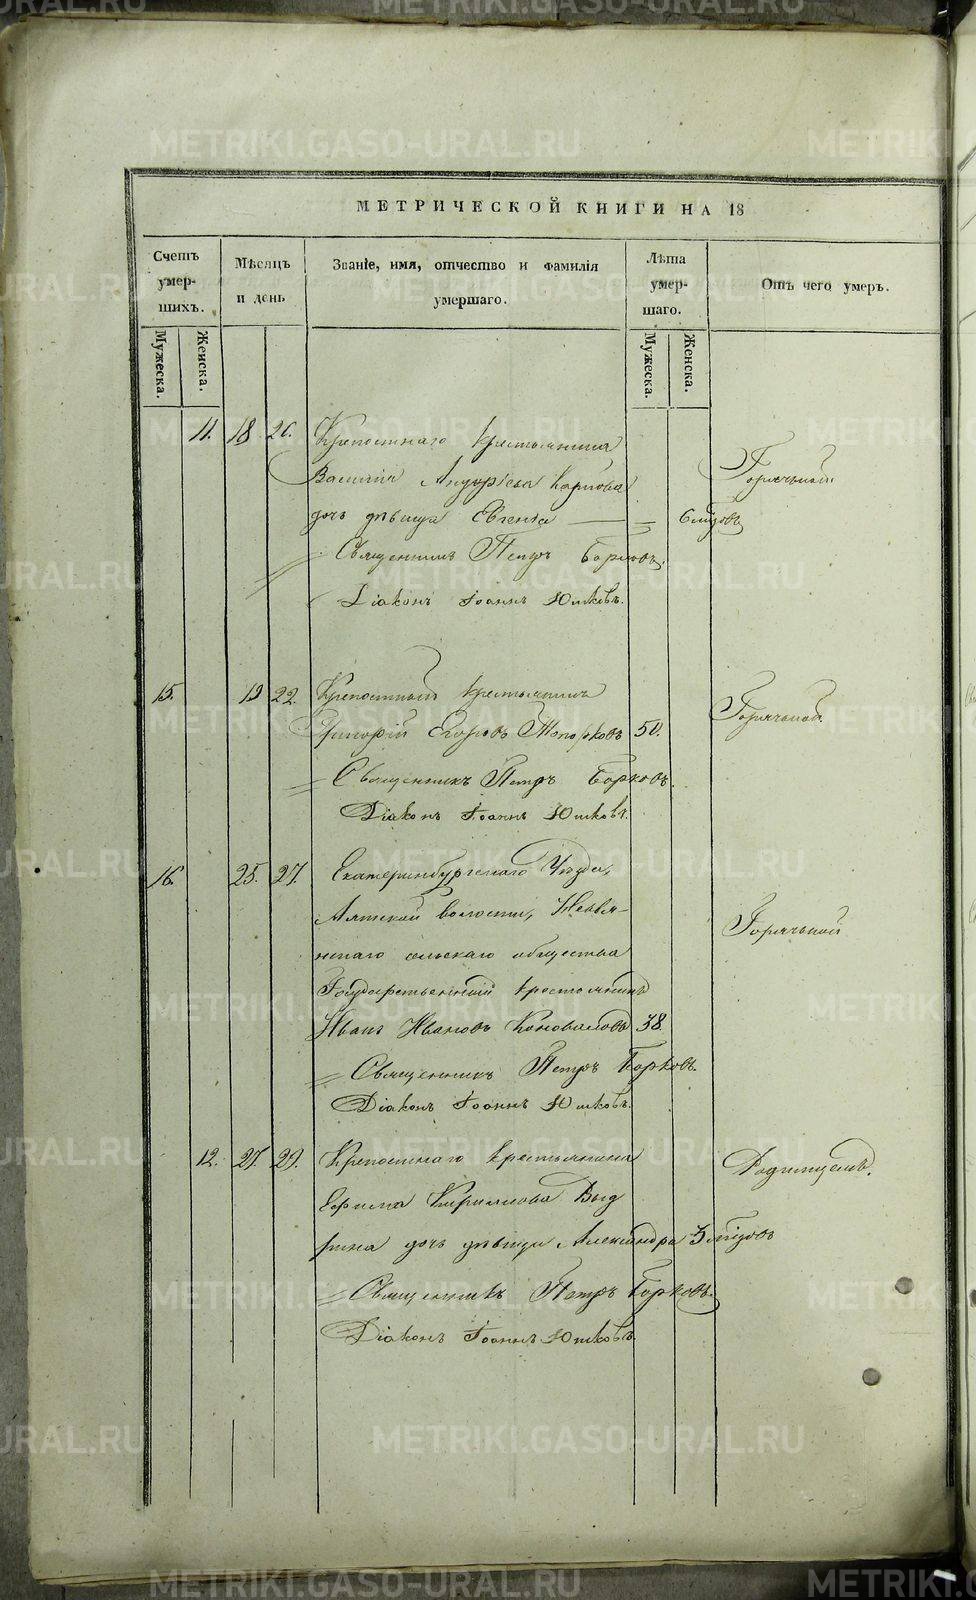 МЕТРИЧЕСКОЙ КНИГИ НА 18
Счетъ умерших.
Мѣсяцъ и день
Званіе, имя, отчество и фамилія умершаго.
Лѣта умершаго.
Отъ чего умеръ.
Мужеска.
Женска.
Мужеска.
Женска.
11. 18 20. Крепостнаго крестьянина
Василія Андрѣева Карпова
Горячькой
дочь дѣвица Евгенія 6 мѣ
Священникъ Петръ Борковъ.
Діаконъ Іоаннъ Юшковъ.
15. 19 22. Крепостный крестьянинъ
Горячькой
Григорій Егоровъ Топорковъ 50.
Священникъ Петръ Борковъ.
Діаконъ Іоаннъ Юшковъ.
16. 25. 27. Екатеринбургскаго Уѣзда,
Аятской волости, Невья-
Горячькой
нскаго сельскаго общества
Государственный крестьянинъ
Иванъ Ивановъ Коноваловъ 38.
Священникъ Петръ Борковъ.
Діаконъ Іоаннъ Юшковъ.
12. 27. 29. Крепостнаго крестьянина
Родимцемъ.
Ефима Кирилова Выд
рина дочь дѣвица Александра 3
Священникъ Петръ Борковъ.
Діаконъ Іоаннъ Юшковъ.
METRIKI.GASO-URAL.RU